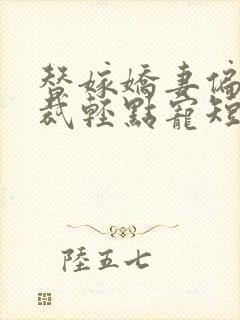 替嫁嬌妻偏
裁輕點寵短
陸五七